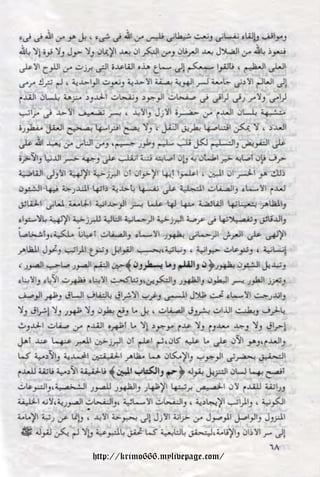 ومواقف وإلقاء نفساني ونعت شيطاني فليس من الله في شيء ، بل هو في
فنعوذ بالله من الضلال بعد العرفان ومن النكران بعد الإيمان ولا حول ولا قوة إلا بالله
العلي العظيم ، فألقوا سمعكم إلى سماع هذه القاعدة التي برزت من اللوح الأعلى
إلى العالم الأدنى جامعة لسر الهوية بصفة الأحدية ونعوت الواحدية ، لم تترك مرمى
لرامي ولا مرقى لراقي في صفحات الوجود ونفحات الحدود منزهة بلسان القدم
متشبهة بلسان العدم من حضرة الأزل والأبد ، بسر تضعيف الأحد في مراتب
العدد ، لا يمكن اقتناصها بطريق النقل ، ولا يصح افتراسها بصحيح العقل مفطورة
على التفويض والتسليم لكل قلب سليم وطور جسيم، ومن الناس من يعبد الله على
حرف فإن أصابه خير اطمأن به وإن أصابته فتنة انقلب على وجهه خسر الدنيا والآخرة
ذلك هو الخسران المبين ، اعلموا أيها الإخوان أن البرزخية الإلهية الأولى القاضية
لعدم الأسماء والصفات المتجلية على نفسها بأحدية ذاتها المندرجة فيها الشئون
والمظاهر بتعيناتها الفائضة منها لها علما بسر الوحدانية الجامعة لمعاني الحقائق
والدقائق وتفصيلاتها في عرصة البرزخية الرحمانية التالية للبرزخية الإلهية بالاستواء
الإلهي على العرش الرحماني بظهور الأسماء والصفات أعيانا ملكية، وأشخاصا
إنسانية ، وتنوعات حيوانية ، ونباتية، بحسب القوابل وتنوع المراتب وتحول المظاهر
وتبديل الشئون بظهور ﴿ن والقلم وما يسطرون﴾ حين التقم الصور صاحب الصور ،
وتعزز الطور بسر البطون والظهور والتكوين، وتناكحت الأنباء فظهرت الآباء والأبناء
واندرجت الأسماء تحت ظلال المسمى وغرب الإشراق بالتفاف الساق وظهر الوصف
بالحرف وبطنت الذات بشروق الصفات ، بل ما وقع بطون ولا ظهور ولا إشراق ولا
إحراق ولا وجد معدوم ولا عدم موجود إلا ما أظهره القدم من صفات الحدوث
والعدم، وهو الآن على ما عليه كان، ثم اعلم أن البرزخين المعبر عنهما عند أهل
التحقيق بحضرتي الوجوب والإمكان هما مظاهر الحقيقتين المحمدية والآدمية كما
أفصح بهما لسان التنزيل بقوله ﴿حم والكتاب المبين﴾ فالحقيقة الآدمية فاتقة للعدم
وراتقة للقدم لأن الحضيض برتبتها الإظهار والظهور للصور الشخصية، والتنوعات
الكونية ، والمراتب الإيجادية ، والنفحات الأسمائية ، والنفحات الصورية، لأنه الخليفة
المنزول والواصل الموصول من خزانة الأزل إلى بحبوحة الأبد ، وإنما عن رتبة الإمامة
إلى سر الأذان والإقامة، ليتحقق بالتابعية كما تحقق بالمتبوعية وإلا لم يكن لقوله ﷺ
٦٨
http://krimo666.mylivepage.com/